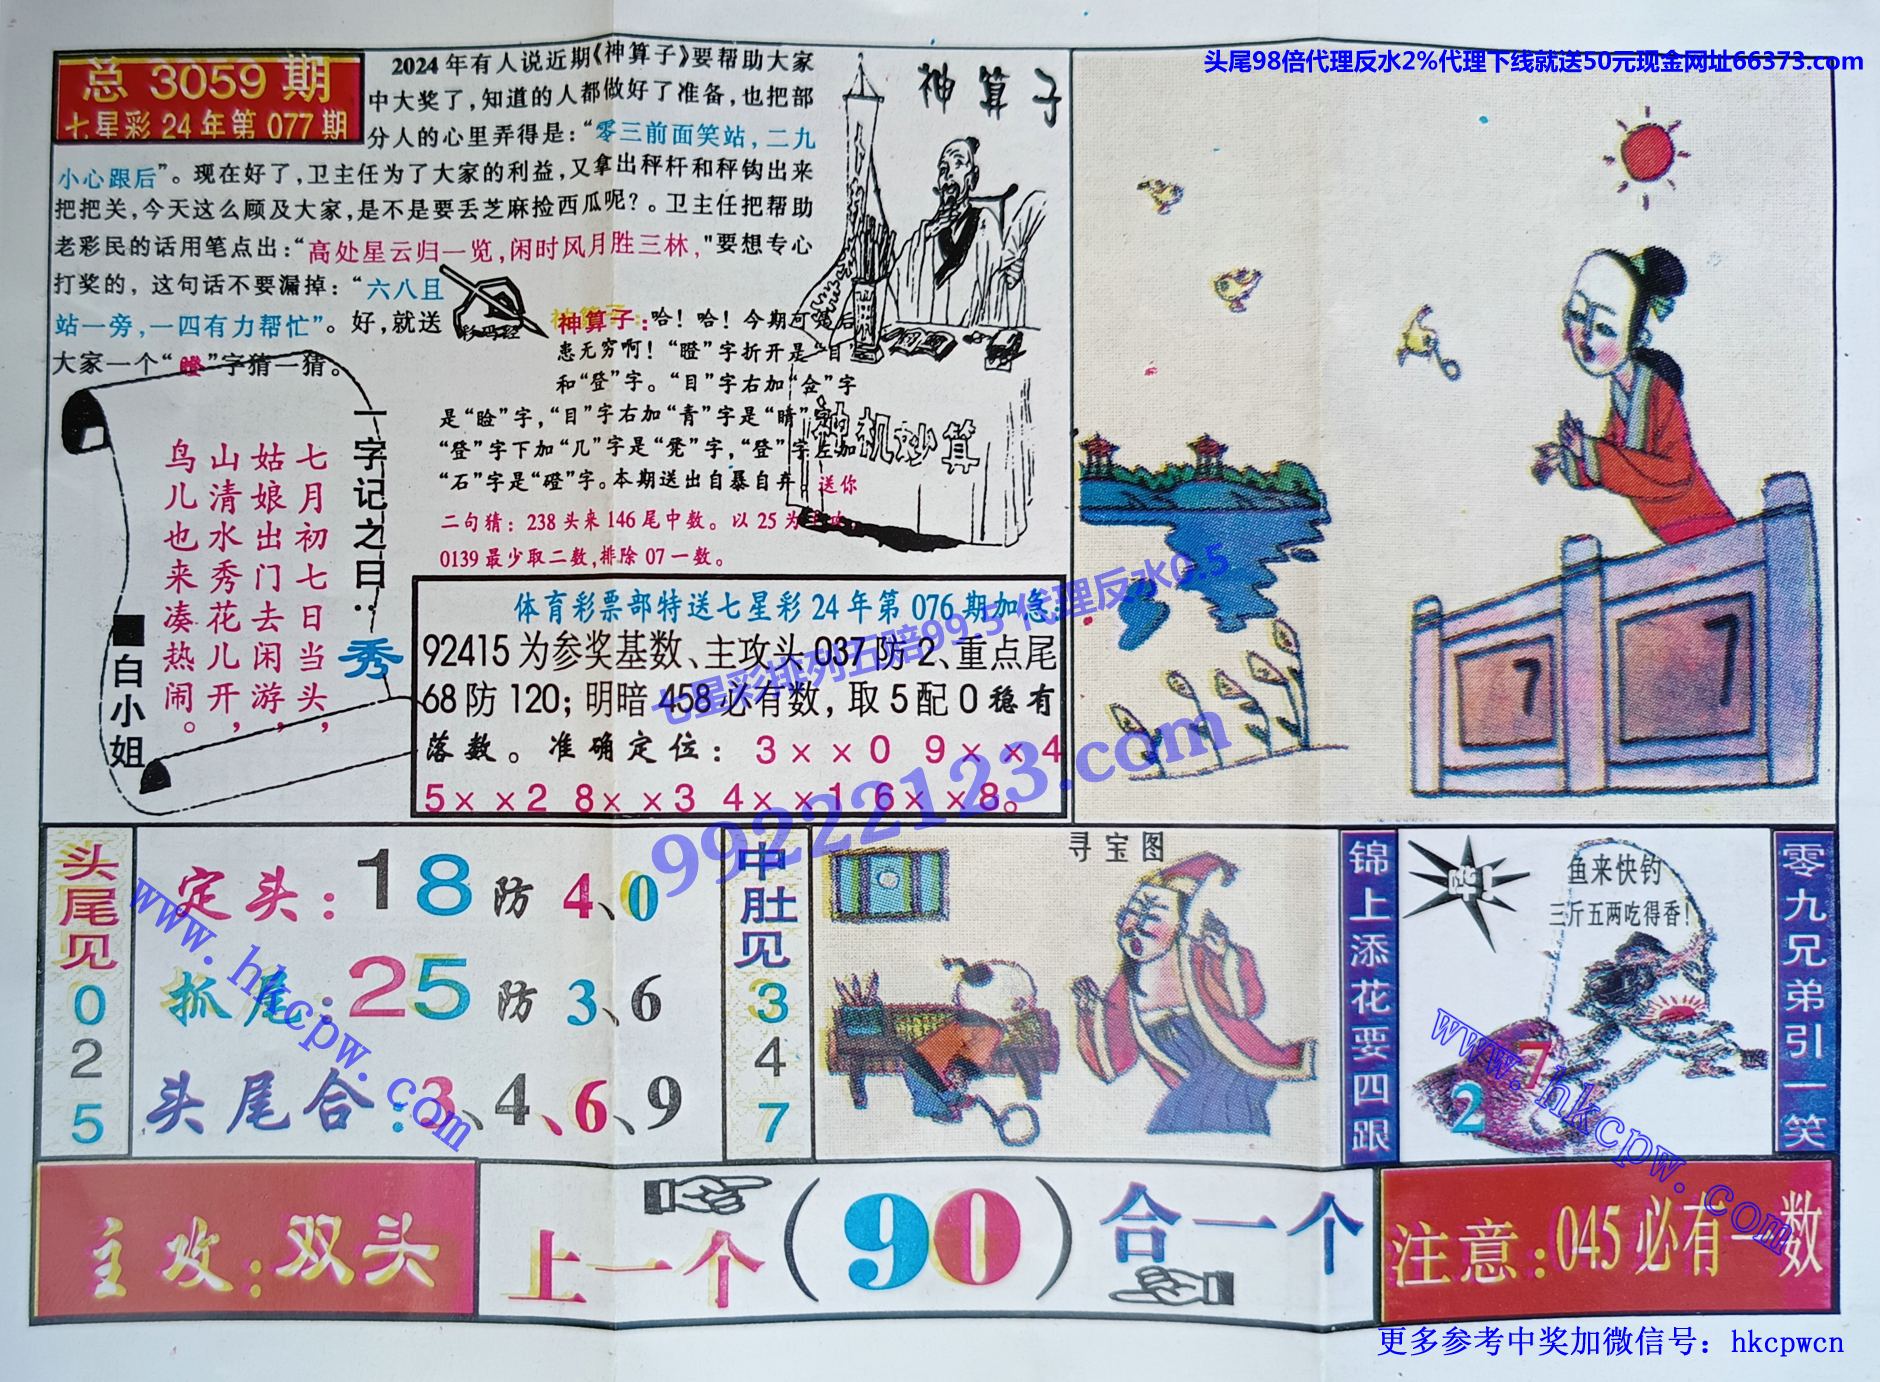 头尾98倍代理反水2%代理下线就送50元现金网址66373.com
总 3059 期
七星彩24年第077期
2024年有人说近期《神算子》要帮助大家
中大奖了,知道的人都做好了准备,也把部
分人的心里弄得是:“零三前面笑站,二九
小心跟后”。现在好了,卫主任为了大家的利益,又拿出秤杆和秤钩出来
把把关,今天这么顾及大家,是不是要丢芝麻捡西瓜呢?。卫主任把帮助
老彩民的话用笔点出:“高处星云归一览,闲时风月胜三林,"要想专心
打奖的,这句话不要漏掉:“六八且
站一旁,一四有力帮忙”。好,就送
大家一个“瞪”字猜一猜。
神算子
神机妙算
神算子:哈!哈!今期可是后
患无穷啊!“瞪”字折开是“目”
和“登”字。“目”字右加“佥”字
是“睑”字,“目”字右加“青”字是“睛”字,
“登”字下加“几”字是“凳”字,“登”字左加
“石”字是“磴”字。本期送出自暴自弃。送你
二句猜:238头来146尾中数。以25为主攻,
0139最少取二数,排除07一数。
一字记之曰:秀
七月初七日当头,
姑娘出门去闲游,
山清水秀花儿开,
鸟儿也来凑热闹。
■白小姐
体育彩票部特送七星彩24年第076期加急:
92415为参奖基数、主攻头037防2、重点尾
68防120;明暗458必有数,取5配0稳有
落数。准确定位:3××0 9××4
5××2 8××3 4××1 6××8。
七星彩排列五赔99.5 代理反水0.5
99222123.com
7
7
头尾见025
定头:18防4、0
抓尾:25防3、6
头尾合:3、4、6、9
中肚见347
寻宝图
锦上添花要四跟
哗!
鱼来快钓
三斤五两吃得香!
7
2
零九兄弟引一笑
www.hkcpw.com
www.hkcpw.com
主攻:双头
上一个(90)合一个
注意:045必有一数
更多参考中奖加微信号:hkcpwcn